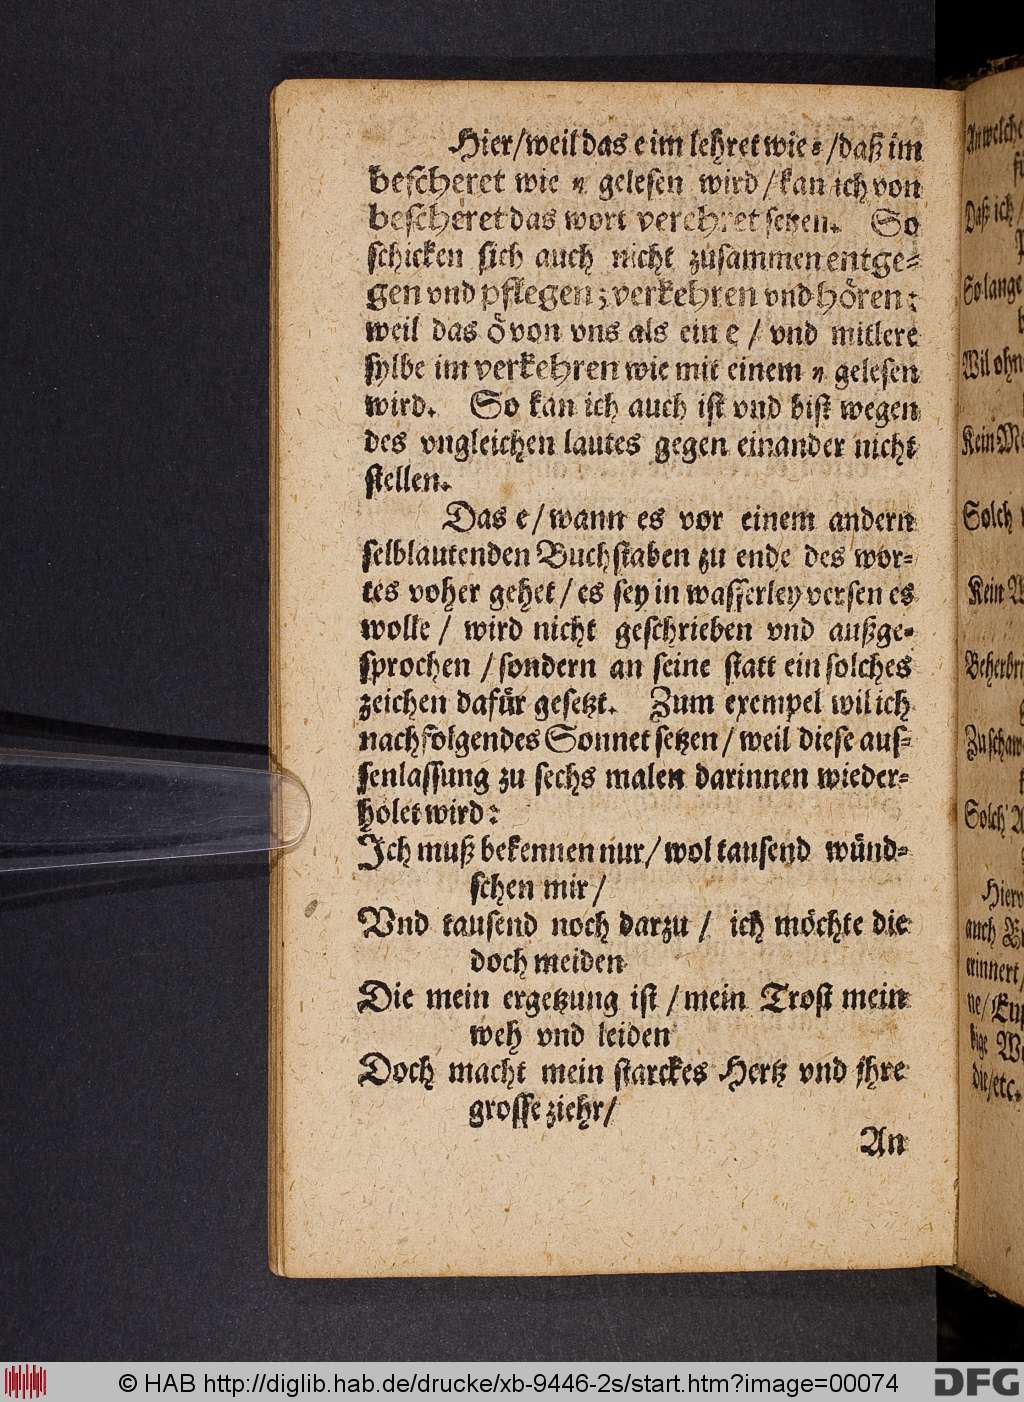 Hier/weil das e im lehret wie ε/daß im
bescheret wie η gelesen wird/kan ich von
bescheret das wort verehret setzen. So
schicken sich auch nicht zusammen entge-
gen vnd pflegen; verkehren vnd hören:
weil das ö von vns als ein e / vnd mitlere
sylbe im verkehren wie mit einem η gelesen
wird. So kan ich auch ist vnd bist wegen
des vngleichen lautes gegen einander nicht
stellen.
Das e/wann es vor einem andern
selblautenden Buchstaben zu ende des wor-
tes voher gehet/es sey in wasserley versen es
wolle / wird nicht geschrieben vnd außge-
sprochen /sondern an seine statt ein solches
zeichen dafür gesetzt. Zum exempel wil ich
nachfolgendes Sonnet setzen/weil diese aus-
senlassung zu sechs malen darinnen wieder-
holet wird:
Ich muß bekennen nur/wol tausend wünd-
schen mir/
Vnd tausend noch darzu / ich möchte die
doch meiden
Die mein ergetzung ist /mein Trost mein
weh vnd leiden
Doch macht mein starckes Hertz vnd jhre
grosse ziehr/
An
An welche
Daß ich/
So lange
Wil ohn
Kein Me
Solch
Kein
Beherbri
Zu schaw
Solch' A
Hiero
auch
erinnert/
ne/
bige
die/etc.
© HAB http://diglib.hab.de/drucke/xb-9446-2s/start.htm?image=00074
DFG